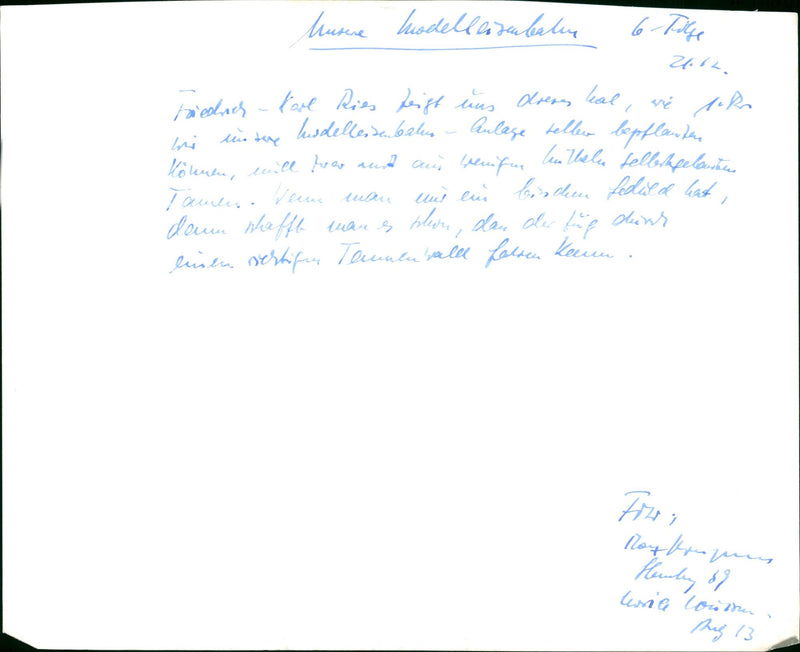 Unsere Modelleisenbahn 6-Folge
21.12.
Friedrich-Karl Ries zeigt uns dieses Mal, wie
wir unsere Modelleisenbahn-Anlage selber bepflanzen
können, und zwar mit aus wenigen Mitteln selbstgebauten
Tannen. Wenn man nur ein bisschen Geduld hat,
dann schafft man es schon, dass der Zug durch
einen richtigen Tannenwald fahren kann.
Foto:
Hamburg